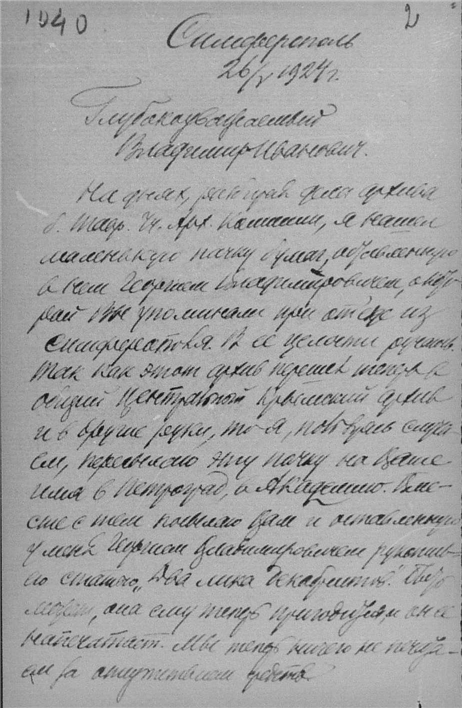 1040 2
Симферополь
26/V 1924 г.
Глубокоуважаемый
Владимир Иванович.
На днях, разбирая дела архива
б. Тавр. Уч. Арх. Комиссии, я нашел
маленькую пачку бумаг, оставленную
в нем Георгием Владимировичем, о кото-
рой Вы упоминали при отъезде из
Симферополя. В ее целости ручаюсь.
Так как этот архив перешел теперь в
общий Центральный Крымский архив
и в другие руки, то я, пользуясь случа-
ем, пересылаю эту пачку на Ваше
имя в Петроград, в Академию. Вме-
сте с тем посылаю Вам и оставленную
у меня Георгием Владимировичем рукопис-
ную статью „Два лика декабристов". Быть
может, она ему теперь пригодится и он ее
напечатает. Мы теперь ничего не печата-
ем за отсутствием средств.